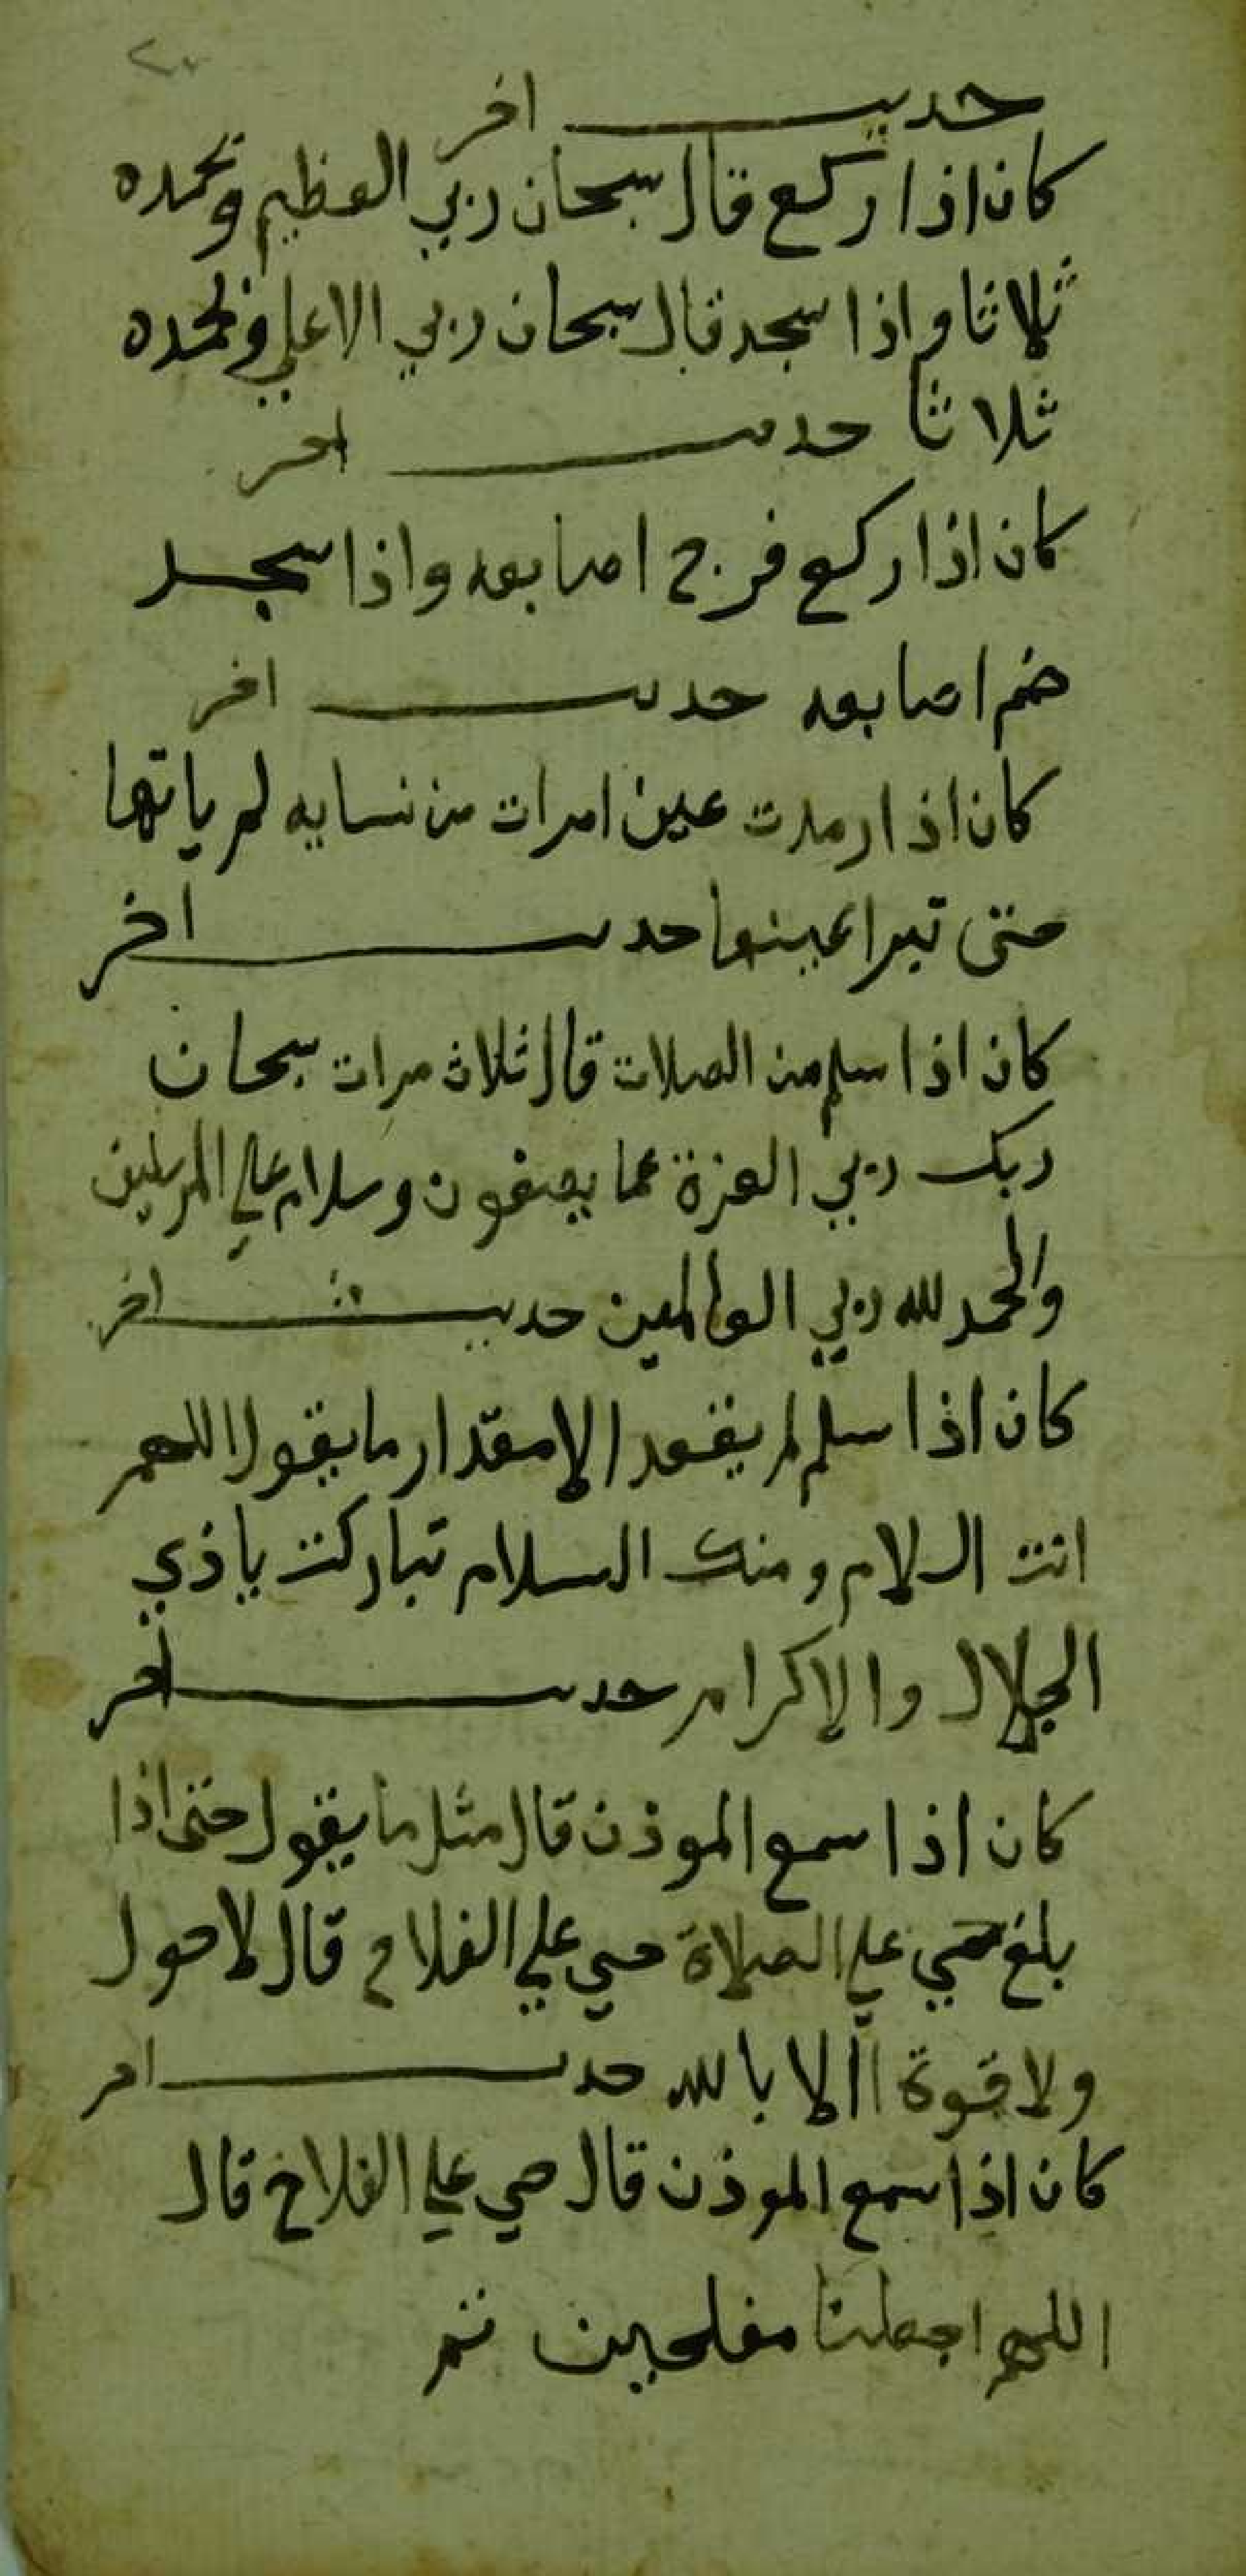 حديث اخر
كان اذا ركع قال سبحان ربي العظيم وبحمده
ثلاثا واذا سجد قال سبحان ربي الاعلي وبحمده
ثلاثا حديث اخر
كان اذا ركع فرج اصابعه واذا سجد
ضم اصابعه حديث اخر
كان اذا رمدت عين امرات من نسايه لم ياتها
حتى تبرا عينها حديث اخر
كان اذا سلم من الصلات قال ثلاث مرات سبحان
ربك ربي العزة عما يصفون وسلام علي المرسلين
والحمد لله ربي العالمين حديث اخر
كان اذا سلم لم يقعد الا مقدار ما يقول اللهم
انت السلام ومنك السلام تباركت ياذي
الجلال والاكرام حديث اخر
كان اذا سمع الموذن قال مثل ما يقول حتى اذا
بلغ حي علي الصلاة حي علي الفلاح قال لا حول
ولا قوة االا بالله حديث اخر
كان اذا سمع الموذن قال حي علي الفلاح قال
اللهم اجعلنا مفلحين تم